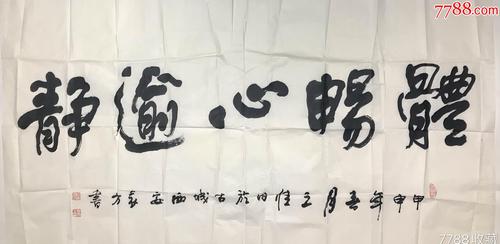 7788.com
體暢心逾静
甲申年吾月 日於古城西安 方書
7788收藏